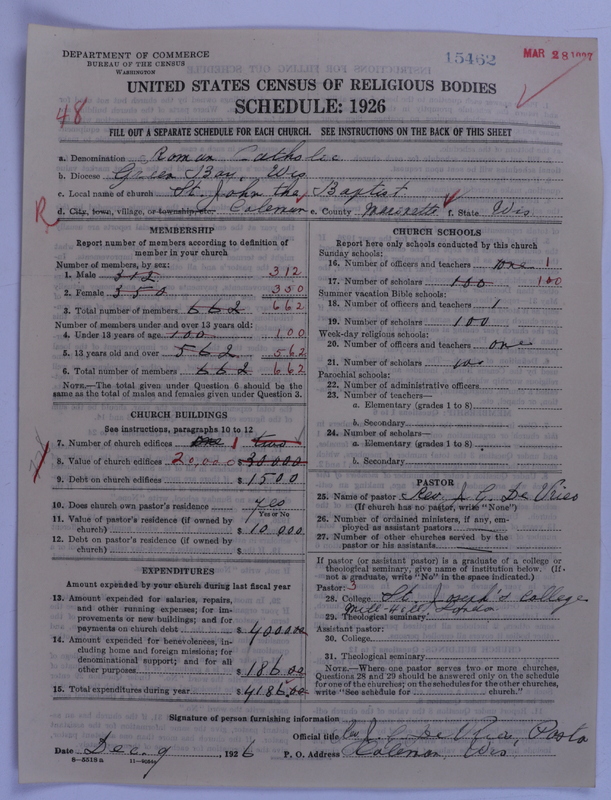 DEPARTMENT OF COMMERCE
BUREAU OF THE CENSUS
WASHINGTON
15462
MAR 28 1927
UNITED STATES CENSUS OF RELIGIOUS BODIES
SCHEDULE: 1926
48
FILL OUT A SEPARATE SCHEDULE FOR EACH CHURCH. SEE INSTRUCTIONS ON THE BACK OF THIS SHEET
a. Denomination Roman Catholic
b. Diocese Green Bay, Wis
c. Local name of church St. John the Baptist
R d. City, town, village, or township, etc. Coleman e. County Marinette f. State Wis
MEMBERSHIP
Report number of members according to definition of
member in your church
Number of members, by sex:
1. Male 312 312
2. Female 350 350
3. Total number of members 662 662
Number of members under and over 13 years old:
4. Under 13 years of age 100 100
5. 13 years old and over 562 562
6. Total number of members 662 662
NOTE.—The total given under Question 6 should be the
same as the total of males and females given under Question 3.
CHURCH BUILDINGS
See instructions, paragraphs 10 to 12
7. Number of church edifices one 1 two
8. Value of church edifices 20,000 $ 30000
9. Debt on church edifices $ 1500
10. Does church own pastor's residence yes
Yes or No
11. Value of pastor's residence (if owned by
church) $ 10 000
12. Debt on pastor's residence (if owned by
church) $
EXPENDITURES
Amount expended by your church during last fiscal year
13. Amount expended for salaries, repairs,
and other running expenses; for im-
provements or new buildings; and for
payments on church debt $ 4000.00
14. Amount expended for benevolences, in-
cluding home and foreign missions; for
denominational support; and for all
other purposes $ 186.00
15. Total expenditures during year $ 4186.00
CHURCH SCHOOLS
Report here only schools conducted by this church
Sunday schools:
16. Number of officers and teachers one 1
17. Number of scholars 100 100
Summer vacation Bible schools:
18. Number of officers and teachers 1
19. Number of scholars 100
Week-day religious schools:
20. Number of officers and teachers one
21. Number of scholars 100
Parochial schools:
22. Number of administrative officers
23. Number of teachers—
a. Elementary (grades 1 to 8)
b. Secondary
24. Number of scholars—
a. Elementary (grades 1 to 8)
b. Secondary
PASTOR
25. Name of pastor Rev. J. G. De Vries
(If church has no pastor, write "None")
26. Number of ordained ministers, if any, em-
ployed as assistant pastors
27. Number of other churches served by the
pastor or his assistants
If pastor (or assistant pastor) is a graduate of a college or
theological seminary, give name of institution below. (If
not a graduate, write "No" in the space indicated.)
Pastor: 3
28. College St. Joseph's College
Mill-Hill London
29. Theological seminary
Assistant pastor:
30. College
31. Theological seminary
NOTE.—Where one pastor serves two or more churches,
Questions 28 and 29 should be answered only on the schedule
for one of the churches; on the schedules for the other churches,
write "See schedule for church."
Signature of person furnishing information
Official title Rev J. G. De Vries, Pastor
Date Dec. 9, 1926 P. O. Address Coleman, Wis.
8-5518a